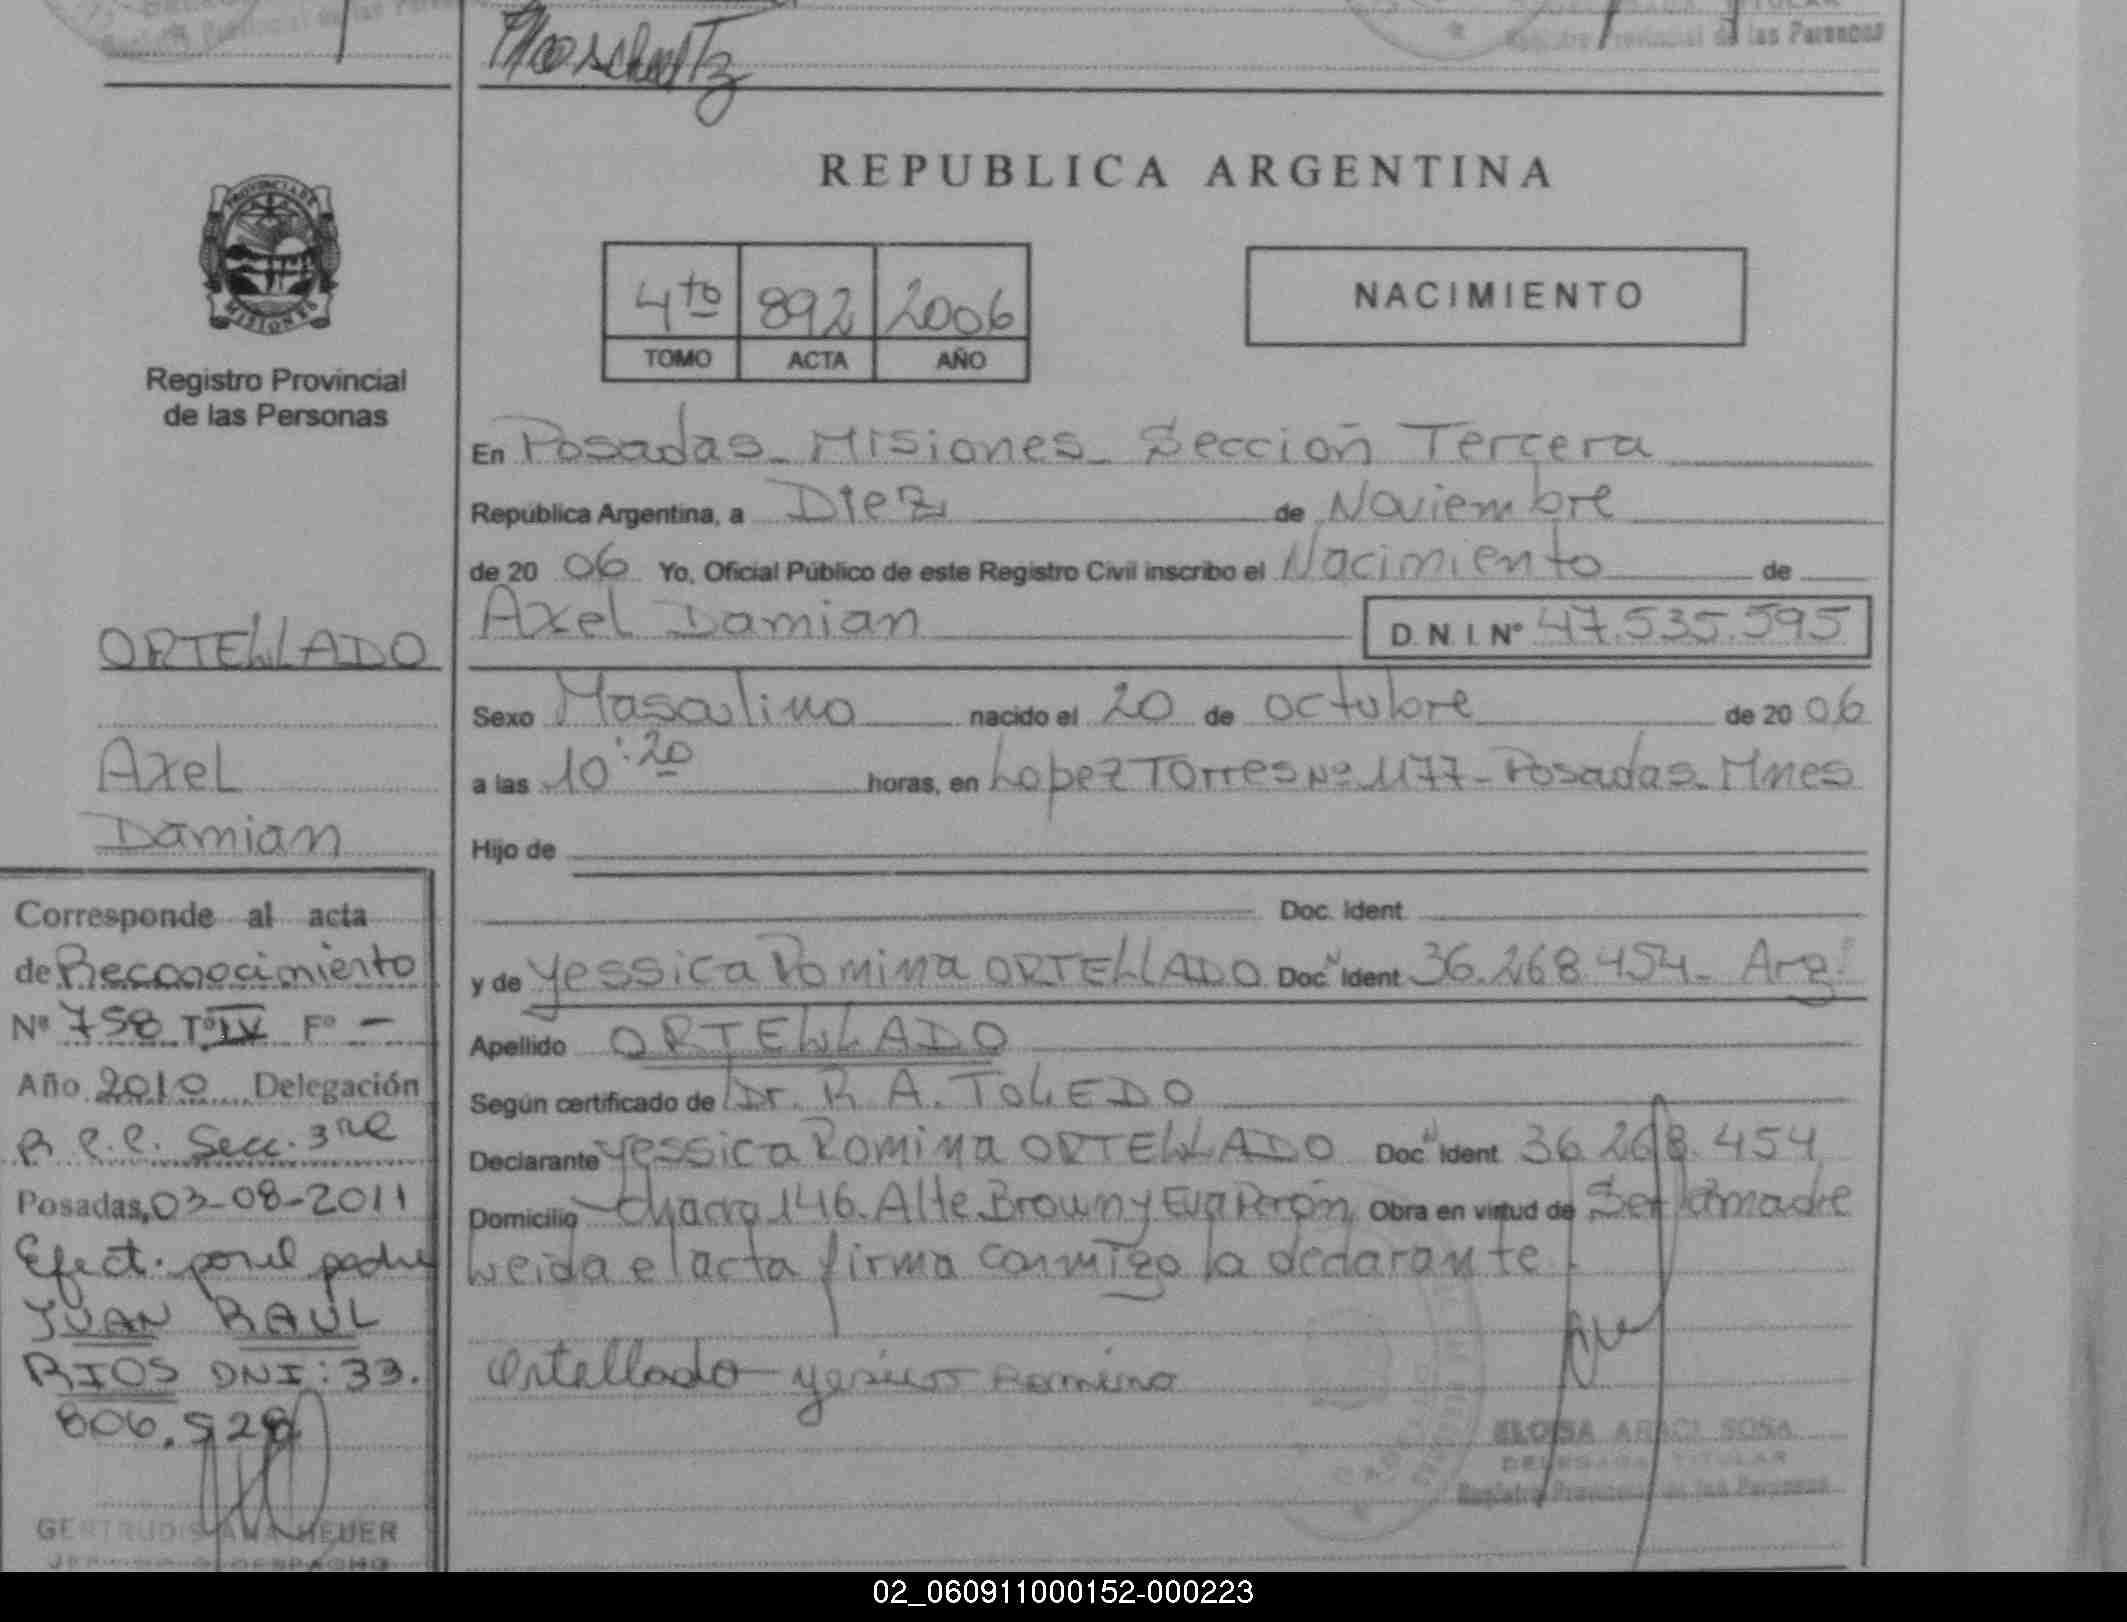 Registro Provincial de las Personas
REPUBLICA ARGENTINA
PROVINCIA DE
MISIONES
Registro Provincial
de las Personas
4to 892 2006
TOMO ACTA AÑO
NACIMIENTO
En Posadas - Misiones - Sección Tercera
República Argentina, a Diez de Noviembre
de 20 06 Yo, Oficial Público de este Registro Civil inscribo el Nacimiento de
Axel Damian D.N.I. Nº 47.535.595
Sexo Masculino nacido el 20 de octubre de 20 06
a las 10:20 horas, en Lopez Torres Nº 1177 - Posadas - Mnes
Hijo de
Doc. Ident.
y de Yessica Romina ORTELLADO Doc. Ident 36.268.454 - Arg.
Apellido ORTELLADO
Según certificado de Dr. R. A. TOLEDO
Declarante Yessica Romina ORTELLADO Doc. Ident 36.268.454
Domicilio Chacra 146. Alte. Brown y Eva Perón Obra en virtud de Ser la madre
Leida el acta firma conmigo la declarante
Ortellado Yesica Romina
ELOISA ARACI SOSA
DELEGADA TITULAR
Registro Provincial de las Personas
ORTELLADO
Axel
Damian
Corresponde al acta
de Reconocimiento
Nº 758 Tº IV Fº -
Año 2010 Delegación
R.P.P. Secc. 3ra
Posadas, 03-08-2011
Efect. por el padre
JUAN RAUL
RIOS DNI: 33.
806.528
GERTRUDIS ANA HEUER
02_060911000152-000223